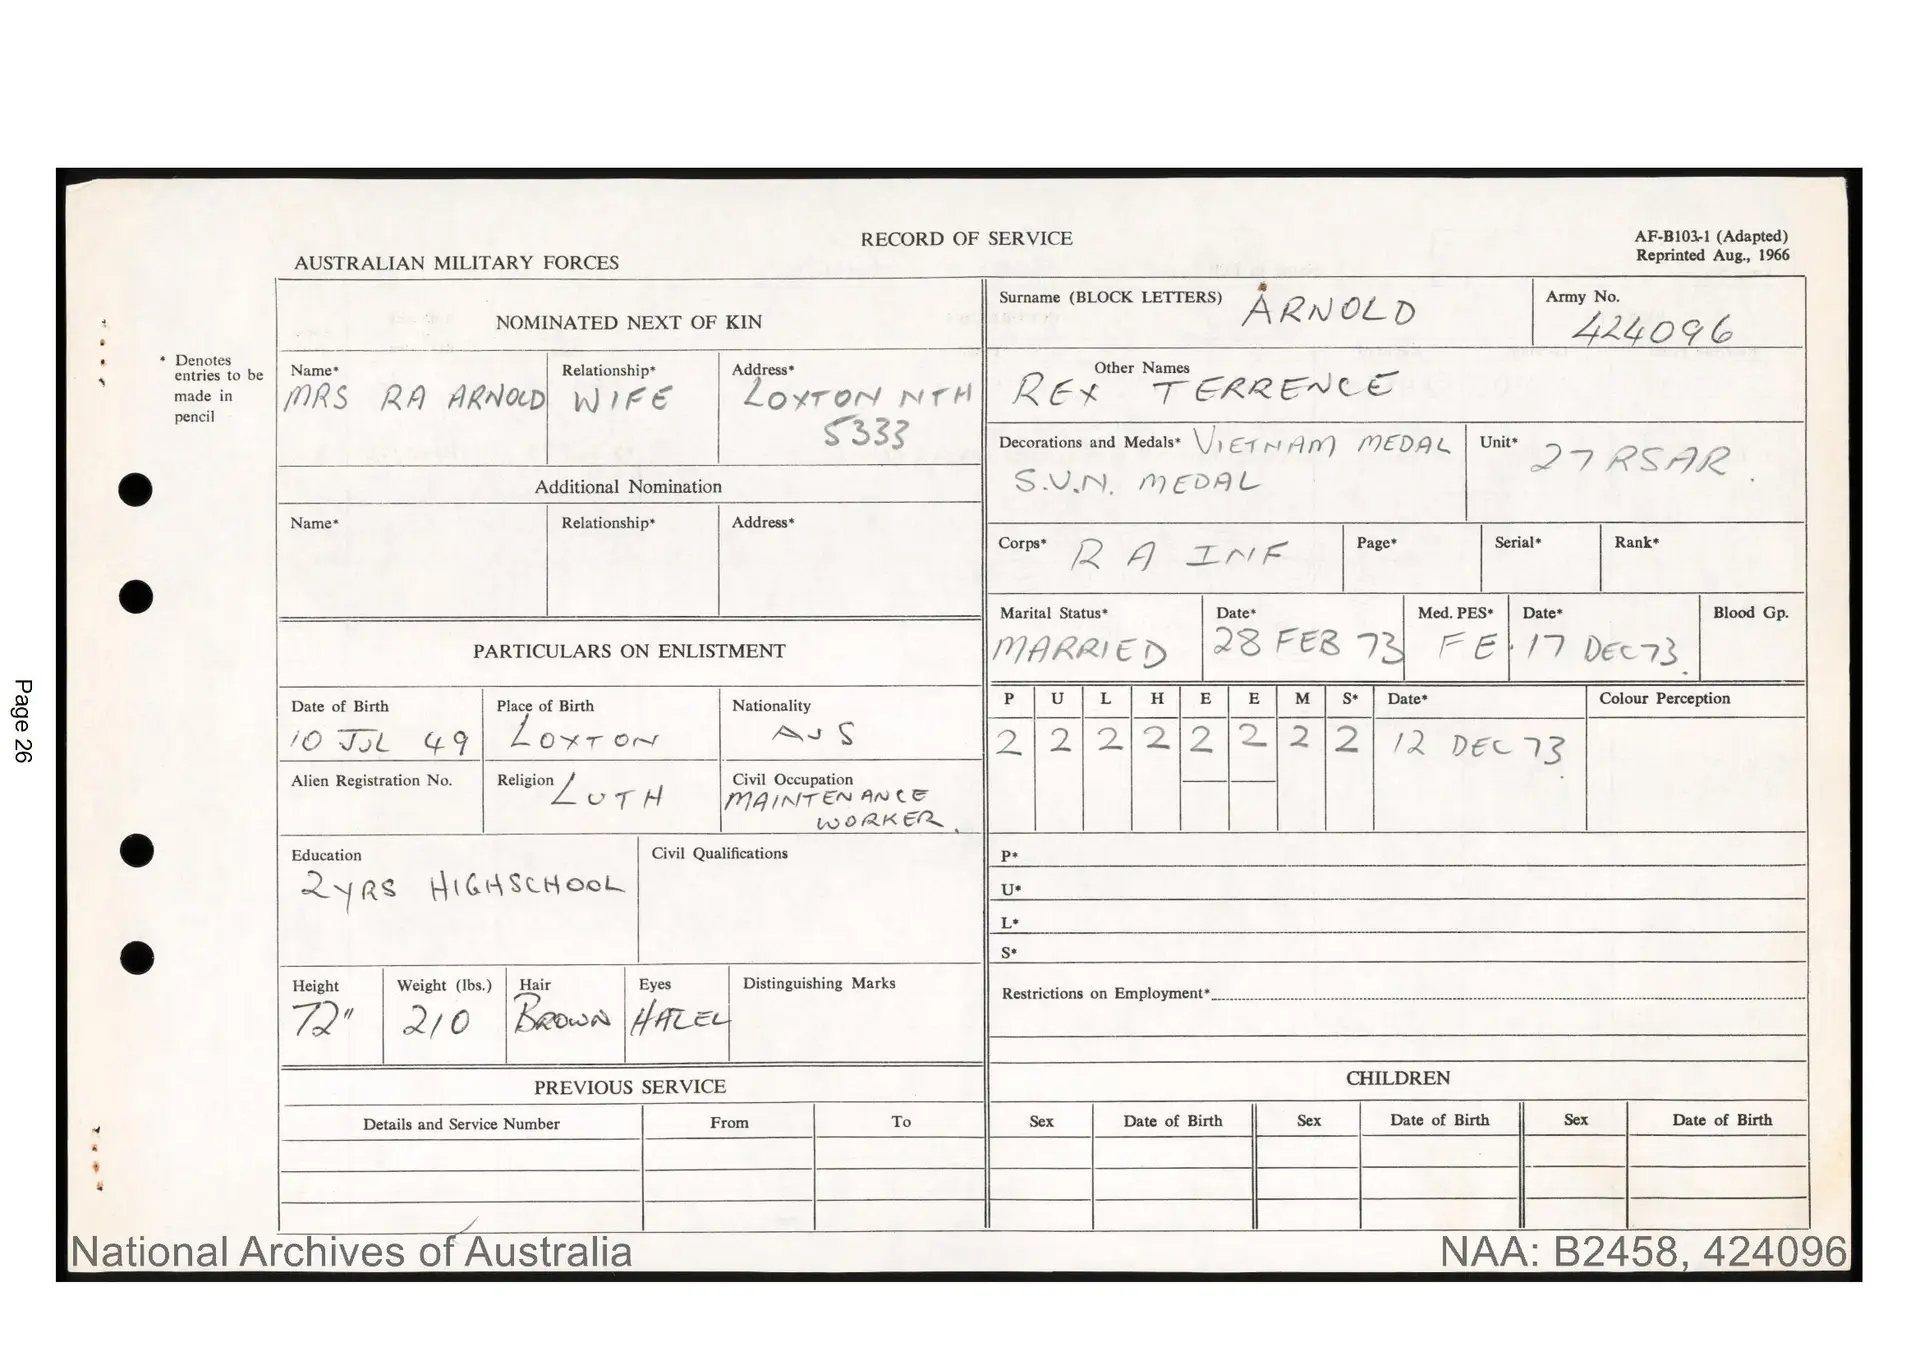 RECORD OF SERVICE
AF-B103-1 (Adapted)
Reprinted Aug., 1966
AUSTRALIAN MILITARY FORCES
* Denotes
entries to be
made in
pencil
NOMINATED NEXT OF KIN
Name* Relationship* Address*
MRS RA ARNOLD WIFE LOXTON NTH
5333
Additional Nomination
Name* Relationship* Address*
PARTICULARS ON ENLISTMENT
Date of Birth Place of Birth Nationality
10 JUL 49 LOXTON AUS
Alien Registration No. Religion LUTH Civil Occupation
MAINTENANCE
WORKER
Education Civil Qualifications
2 YRS HIGHSCHOOL
Height Weight (lbs.) Hair Eyes Distinguishing Marks
72" 210 BROWN HAZEL
PREVIOUS SERVICE
Details and Service Number From To
Surname (BLOCK LETTERS) ARNOLD Army No.
424096
Other Names
REX TERRENCE
Decorations and Medals* VIETNAM MEDAL Unit* 27 RSAR
S.V.N. MEDAL
Corps* R A INF Page* Serial* Rank*
Marital Status* Date* Med. PES* Date* Blood Gp.
MARRIED 28 FEB 73 FE 17 DEC 73
P U L H E E M S* Date* Colour Perception
2 2 2 2 2 2 2 2 12 DEC 73
P*
U*
L*
S*
Restrictions on Employment*
CHILDREN
Sex Date of Birth Sex Date of Birth Sex Date of Birth
Page 26
National Archives of Australia
NAA: B2458, 424096